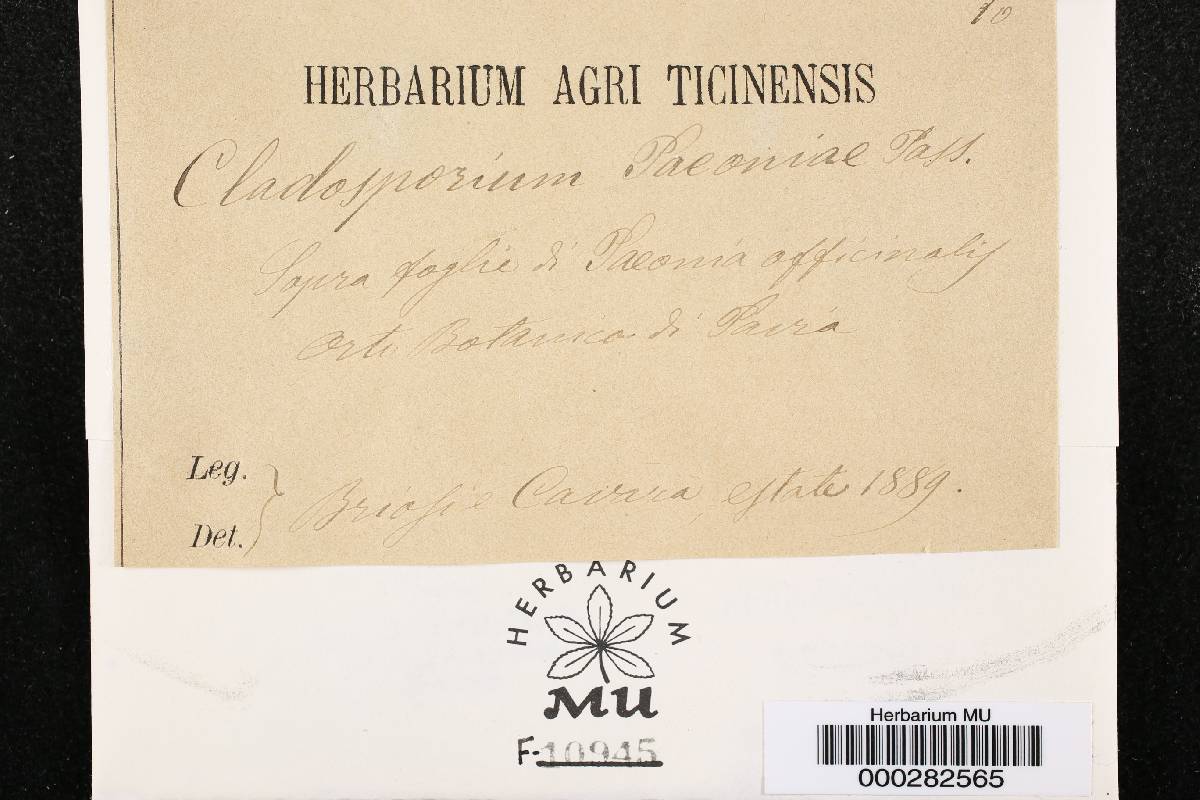 10
HERBARIUM AGRI TICINENSIS
Cladosporium Paeoniae Pass.
Sopra foglie di Paeonia officinalis
Orto Botanico di Pavia
Leg.
Det.
Briosi e Cavara, estate 1889.
HERBARIUM
MU
F-10945
Herbarium MU
000282565